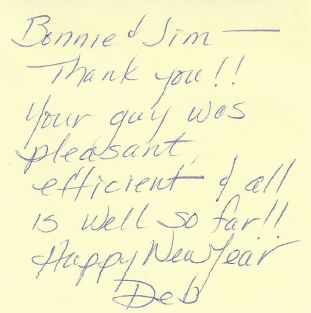 Bonnie & Jim —
Thank you!!
Your guy was
pleasant,
efficient & all
is well so far!!
Happy New Year
Deb